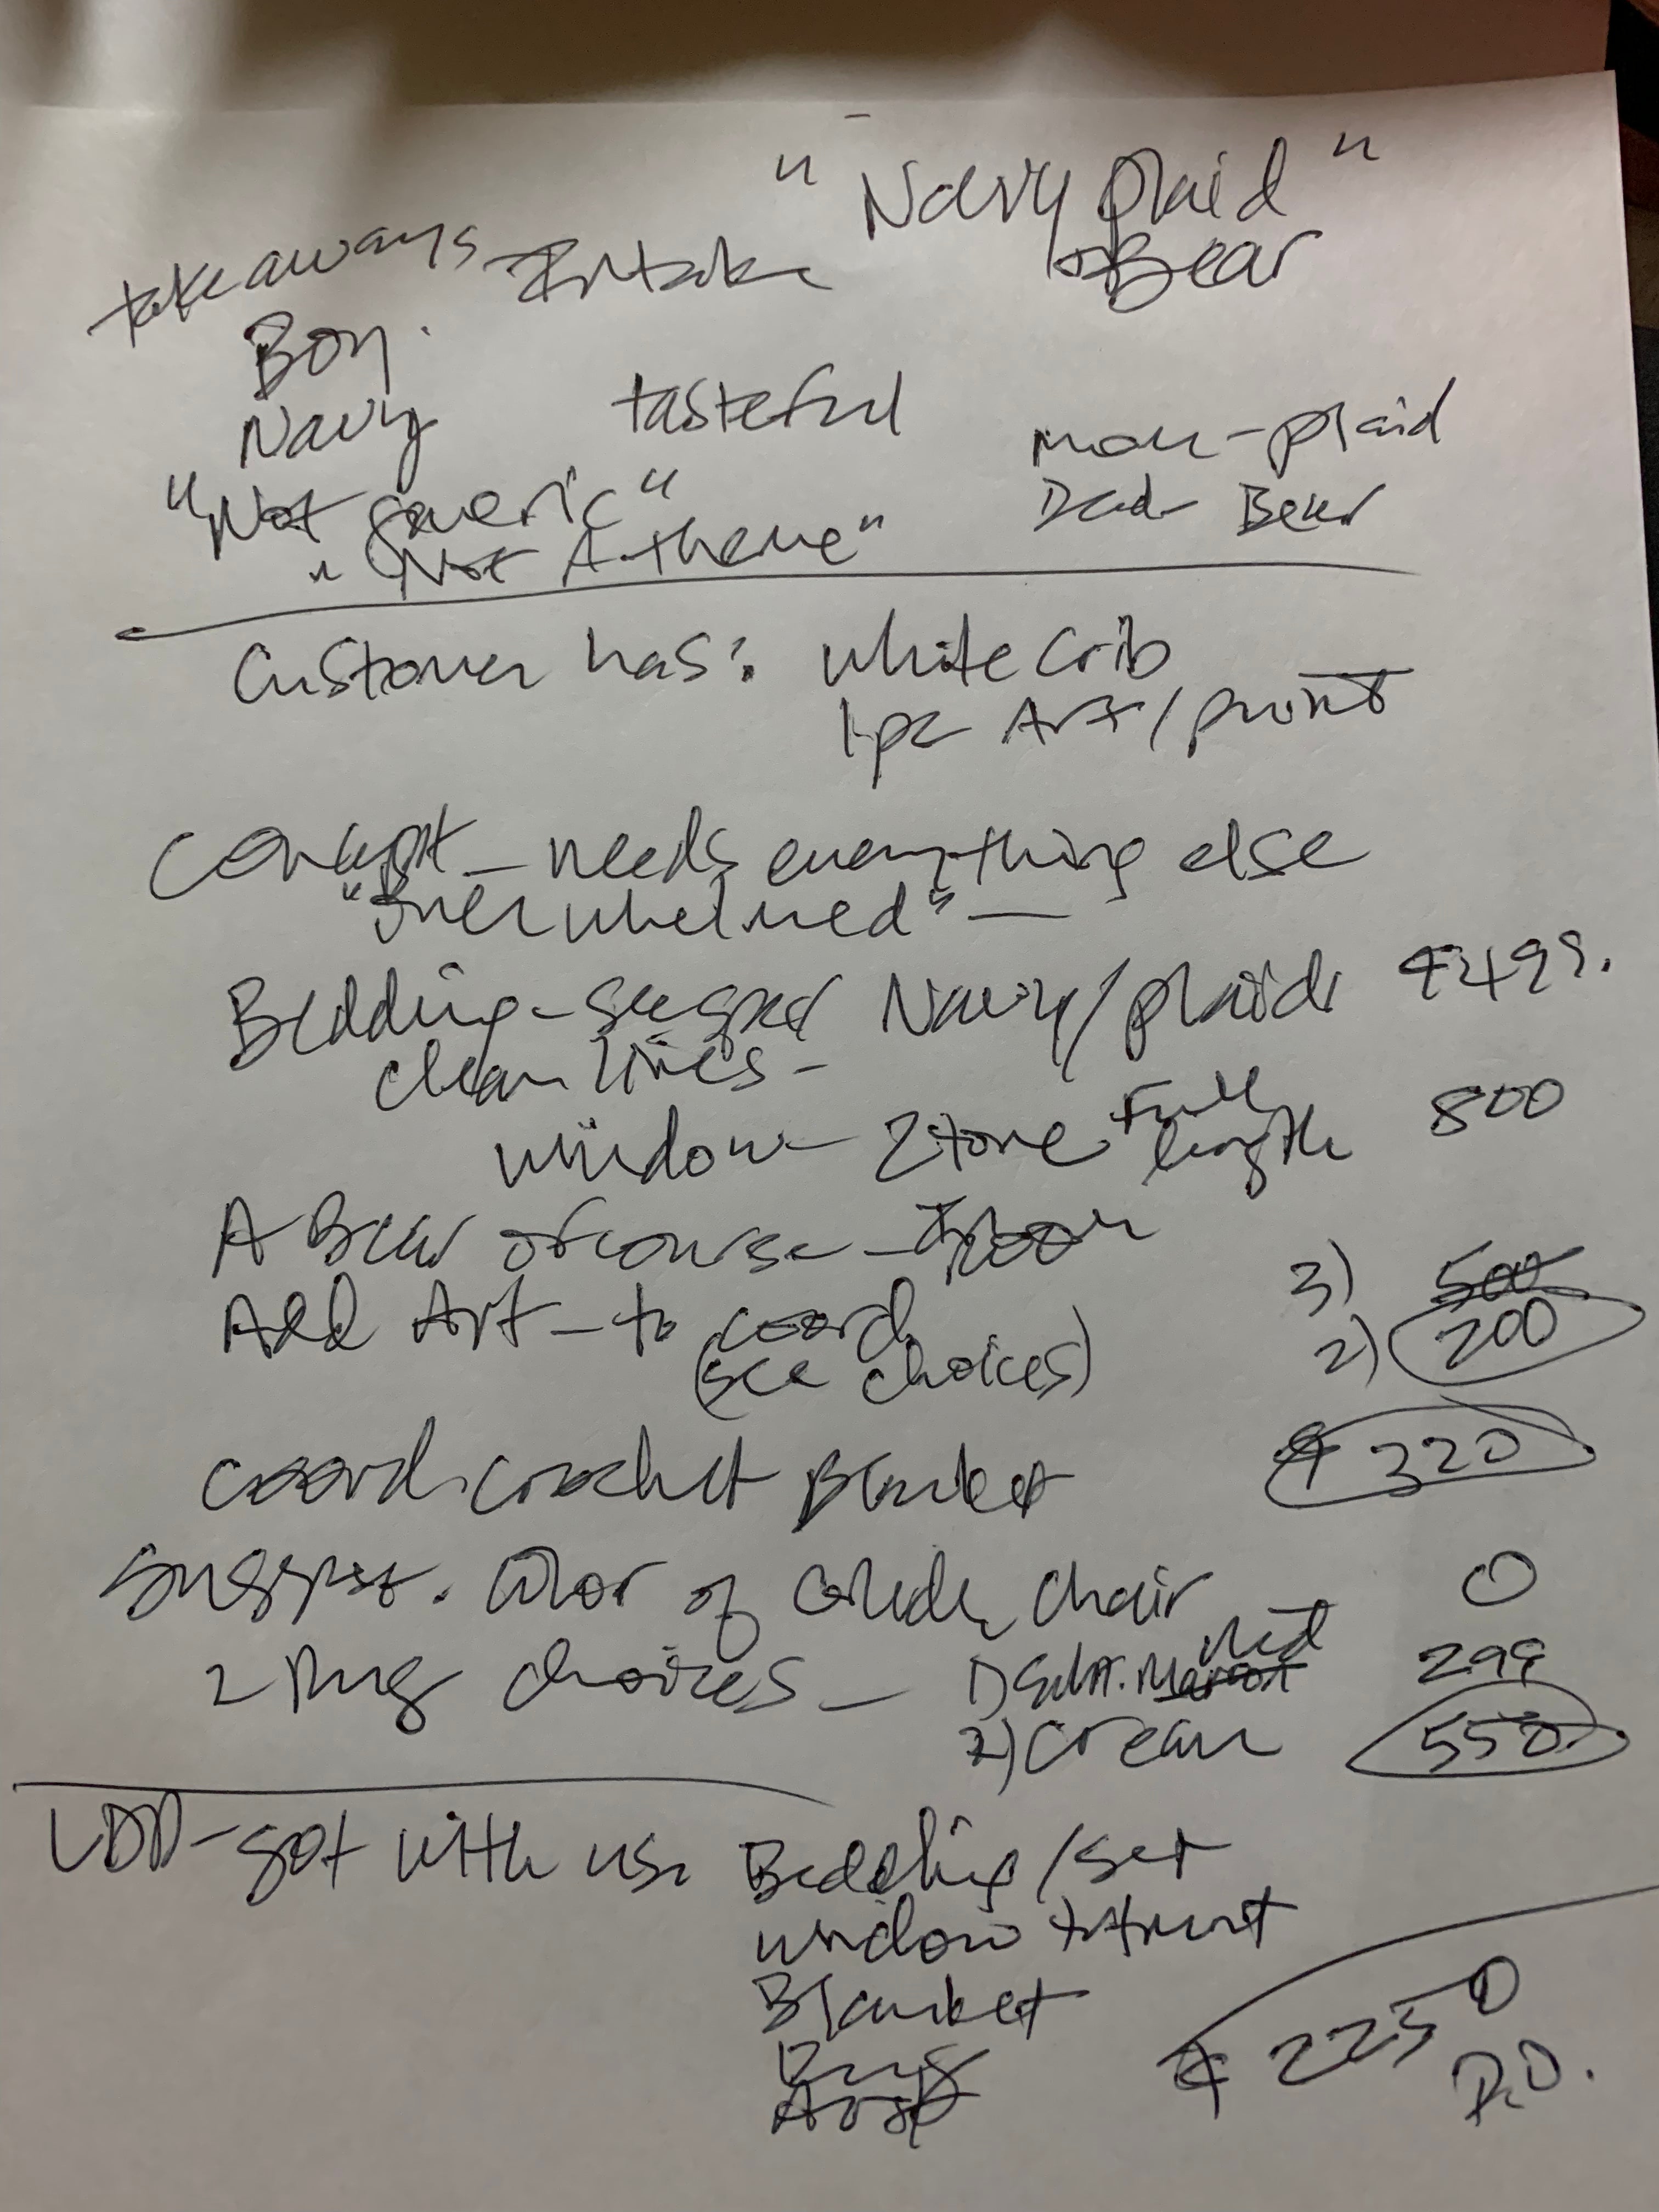 "Navy plaid"
+ Bear
takeaways - Intake
Boy.
Navy tasteful
mom - plaid
Dad Bear
"Not generic"
"Not A theme"
Customer has: white crib
1 pc Art/print
Concept - needs everything else
"overwhelmed" -
Bedding - suggest Navy/plaid $499.
clean lines -
window - 2 tone + Full length 800
A Bear of course - Floor
Add Art - to coord. 3) 500
(see choices) 2) 200
coord. crochet Blanket $320
suggest. color of Glide chair 0
2 Rug choices - 1) 299
2) cream 550
got with us Bedding/set
window
Blanket
Rug
Art
$2250
P.O.